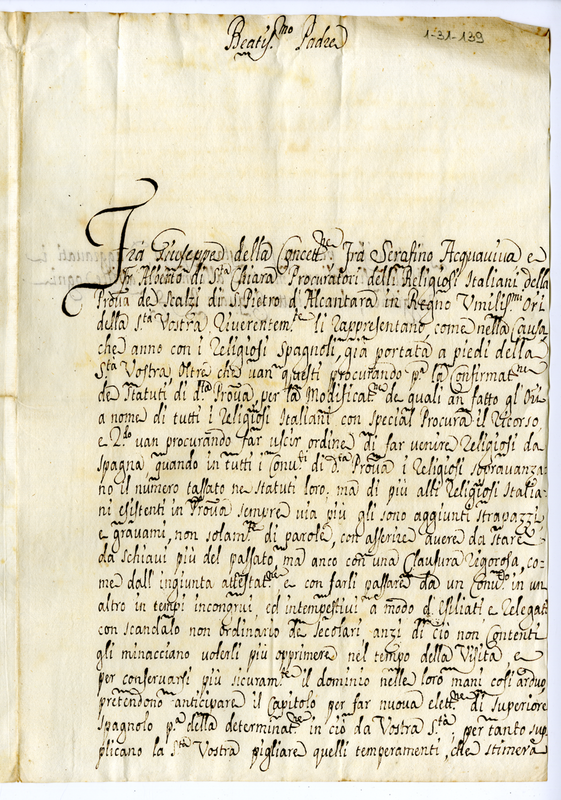 Beatis.mo Padre
1-31-139
Fra Giuseppe della Concett.ne Fra Serafino Acquaviva e
Fr Alberto di S.ta Chiara Procuratori delli Religiosi Italiani della
Prov.a de Scalzi di S. Pietro d'Alcantara in Regno Umilis.mi Ori
della S.tà Vostra Riverentem.te li rappresentano, come nella Causa
che anno con i Religiosi Spagnoli, già portata a piedi della
S.tà Vostra, oltre che van questi procurando p.a la Confirmat.ne
de Statuti di d.ta Prov.a, per la Modificat.ne de quali an fatto gl'Ori
a nome di tutti i Religiosi Italiani con special Procura il ricorso,
e 2.do van procurando far uscir ordine di far venire Religiosi da
Spagna quando in tutti i Conv.ti di d.ta Prov.a i Religiosi sopravanza-
no il numero tassato ne Statuti loro; ma di più alli Religiosi Italia-
ni esistenti in Prov.a sempre via più gli sono aggiunti strapazzi
e gravami, non solam.te di parole, con asserire avere da stare
da schiavi più del passato, ma anco con una Clausura rigorosa, co-
me dall'ingiunta attestat.ne e con farli passare da un Conv.to in un
altro in tempi incongrui, ed intempestivi a modo d'Esiliati e Relegati
con scandalo non ordinario de Secolari, anzi di ciò non Contenti
gli minacciano volerli più opprimere nel tempo della Visita, e
per conservarsi più sicuram.te il dominio nelle loro mani così arduo
pretendono anticipare il Capitolo per far nuova elett.ne di Superiore
Spagnolo p.a della determinat.ne in ciò da Vostra S.tà; per tanto sup-
plicano la S.tà Vostra pigliare quelli temperamenti, che stimerà